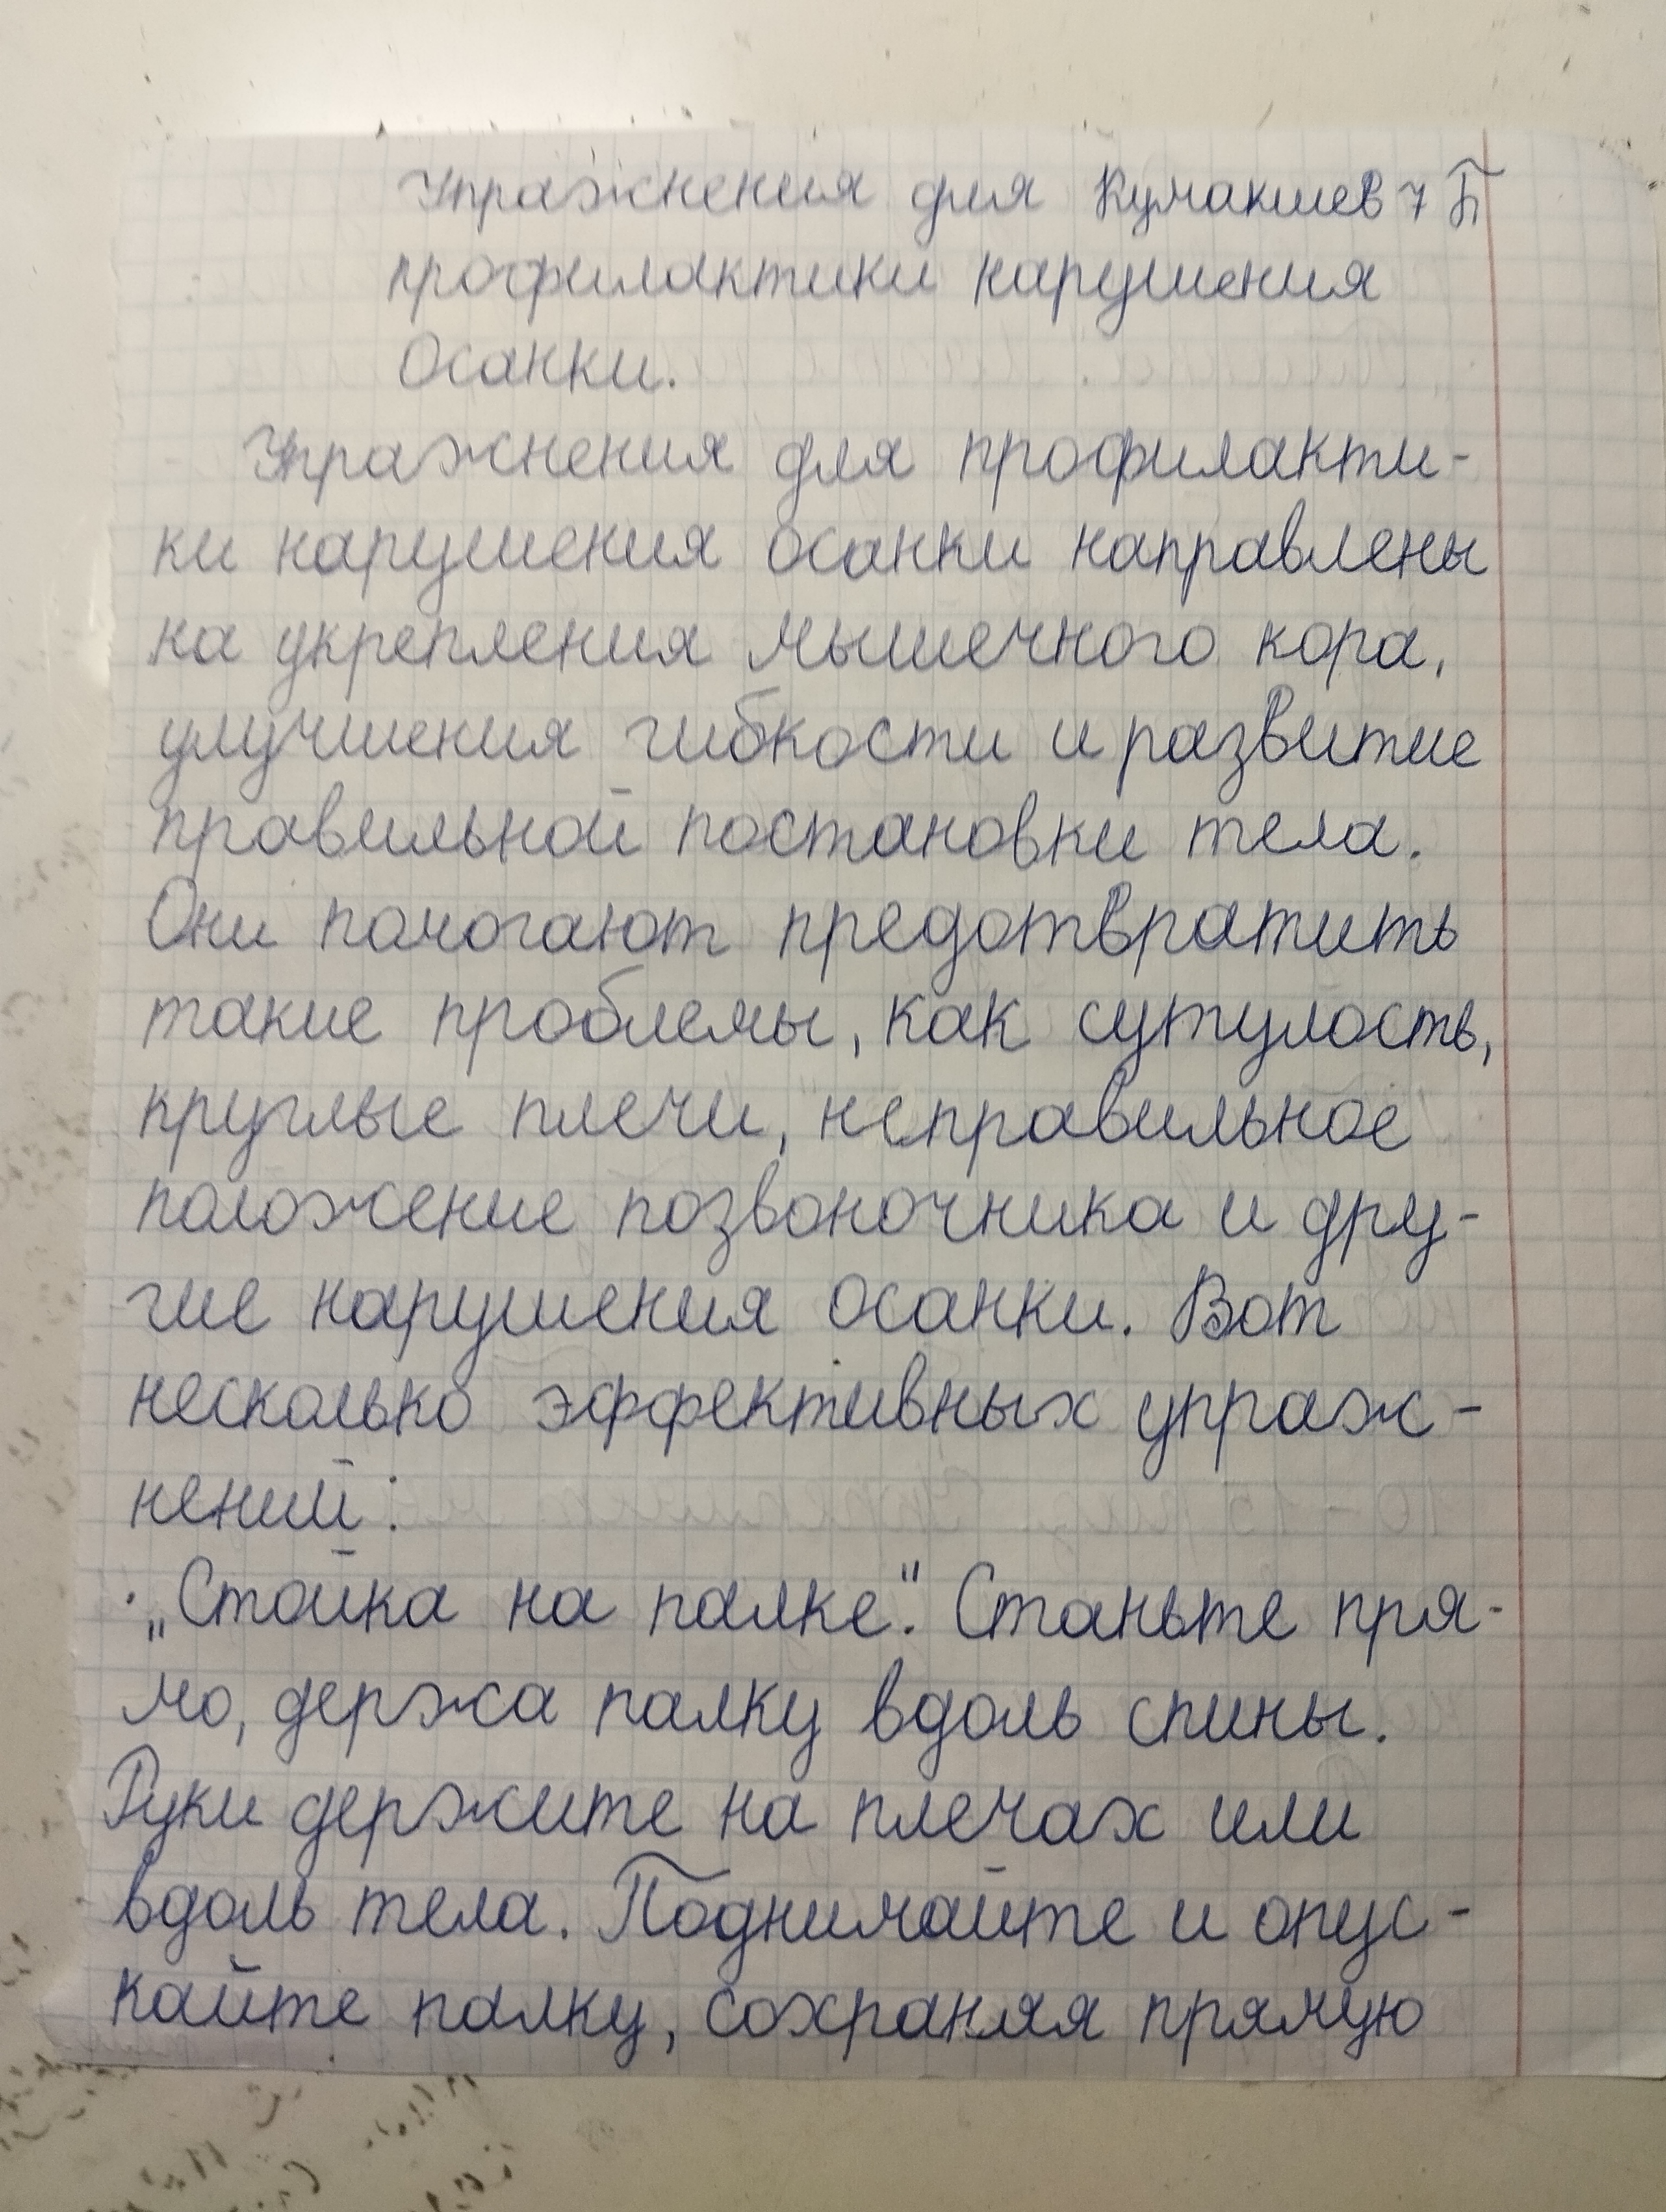 Упражнения для Кумакшев 7 Б
профилактики нарушения
Осанки.
Упражнения для профилакти-
ки нарушения осанки направлены
на укрепления мышечного кора,
улучшения гибкости и развитие
правильной постановки тела.
Они помогают предотвратить
такие проблемы, как сутулость,
круглые плечи, неправильное
положение позвоночника и дру-
гие нарушения осанки. Вот
несколько эффективных упраж-
нений:
· „Стойка на палке". Станьте пря-
мо, держа палку вдоль спины.
Руки держите на плечах или
вдоль тела. Поднимайте и опус-
кайте палку, сохраняя прямую